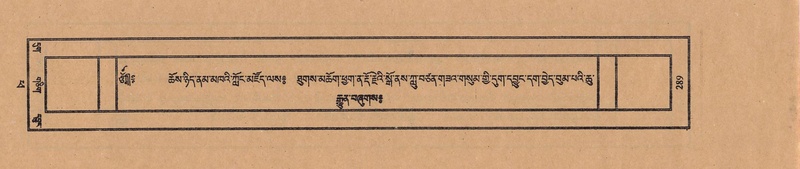 ཆོས་ཉིད་ནམ་མཁའི་ཀློང་མཛོད་ལས༔ ཐུགས་མཆོག་ཕྱག་ན་རྡོ་རྗེའི་སྒོ་ནས་ཀླུ་བཙན་གཟའ་གསུམ་གྱི་དུག་དབྱུང་དག་བྱེད་བུམ་པའི་ཆུ་
རྒྱུན་བཞུགས༔
289